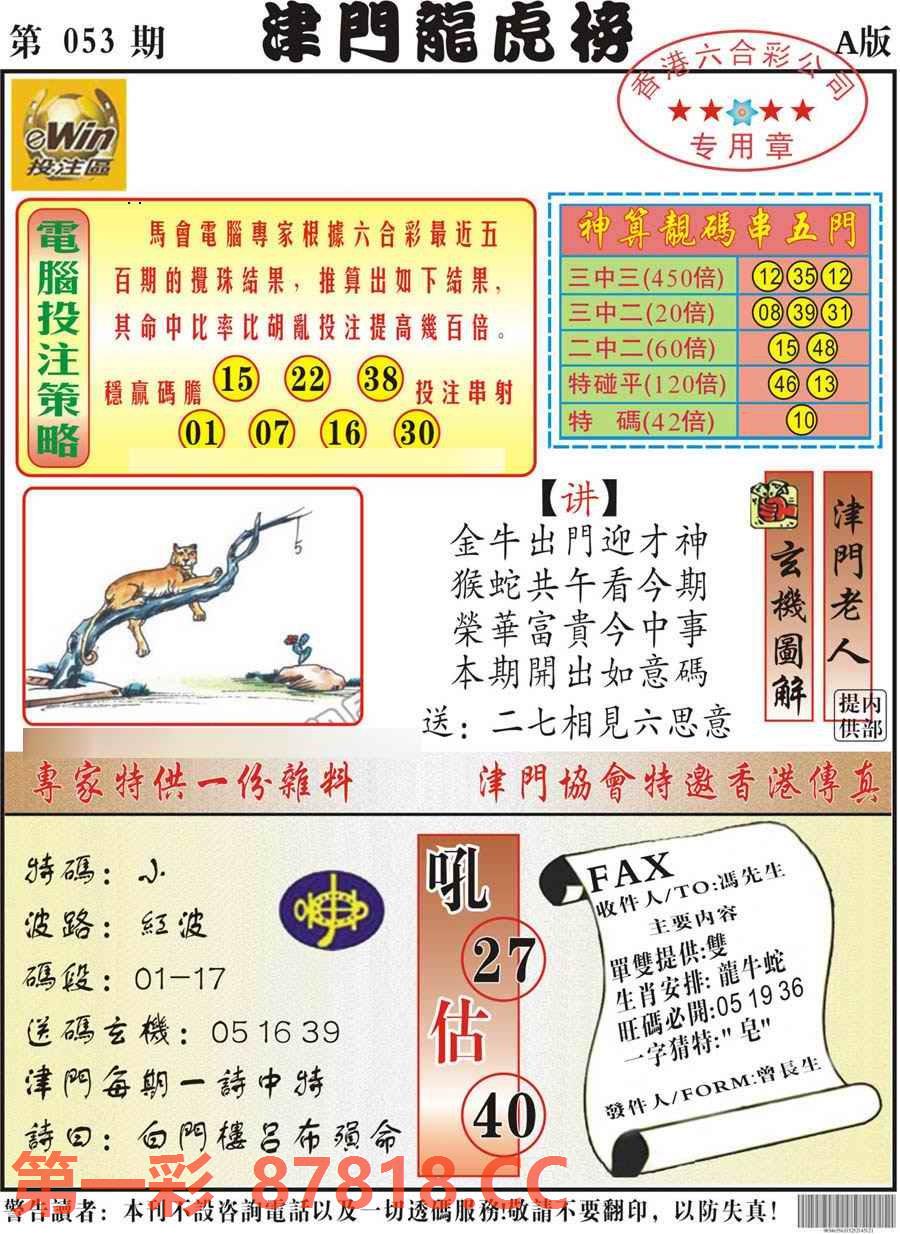 第 053 期
津門龍虎榜
A版
香港六合彩公司
专用章
eWin
投注區
電腦投注策略
馬會電腦專家根據六合彩最近五
百期的攪珠結果，推算出如下結果，
其命中比率比胡亂投注提高幾百倍。
穩贏碼膽 15 22 38 投注串射
01 07 16 30
神算靚碼串五門
三中三(450倍) 12 35 12
三中二(20倍) 08 39 31
二中二(60倍) 15 48
特碰平(120倍) 46 13
特 碼(42倍) 10
5
【讲】
金牛出門迎才神
猴蛇共午看今期
榮華富貴今中事
本期開出如意碼
送：二七相見六思意
玄機圖解
津門老人
内部提供
專家特供一份雜料
津門協會特邀香港傳真
特碼：小
波路：紅波
碼段：01-17
送碼玄機：05 16 39
津門每期一詩中特
詩曰：白門樓呂布殞命
吼
27
估
40
FAX
收件人/TO:馮先生
主要内容
單雙提供:雙
生肖安排:龍牛蛇
旺碼必開:05 19 36
一字猜特:"皂"
發件人/FORM:曾長生
第一彩 87818.CC
警告讀者：本刊不設咨詢電話以及一切透碼服務!敬請不要翻印，以防失真!